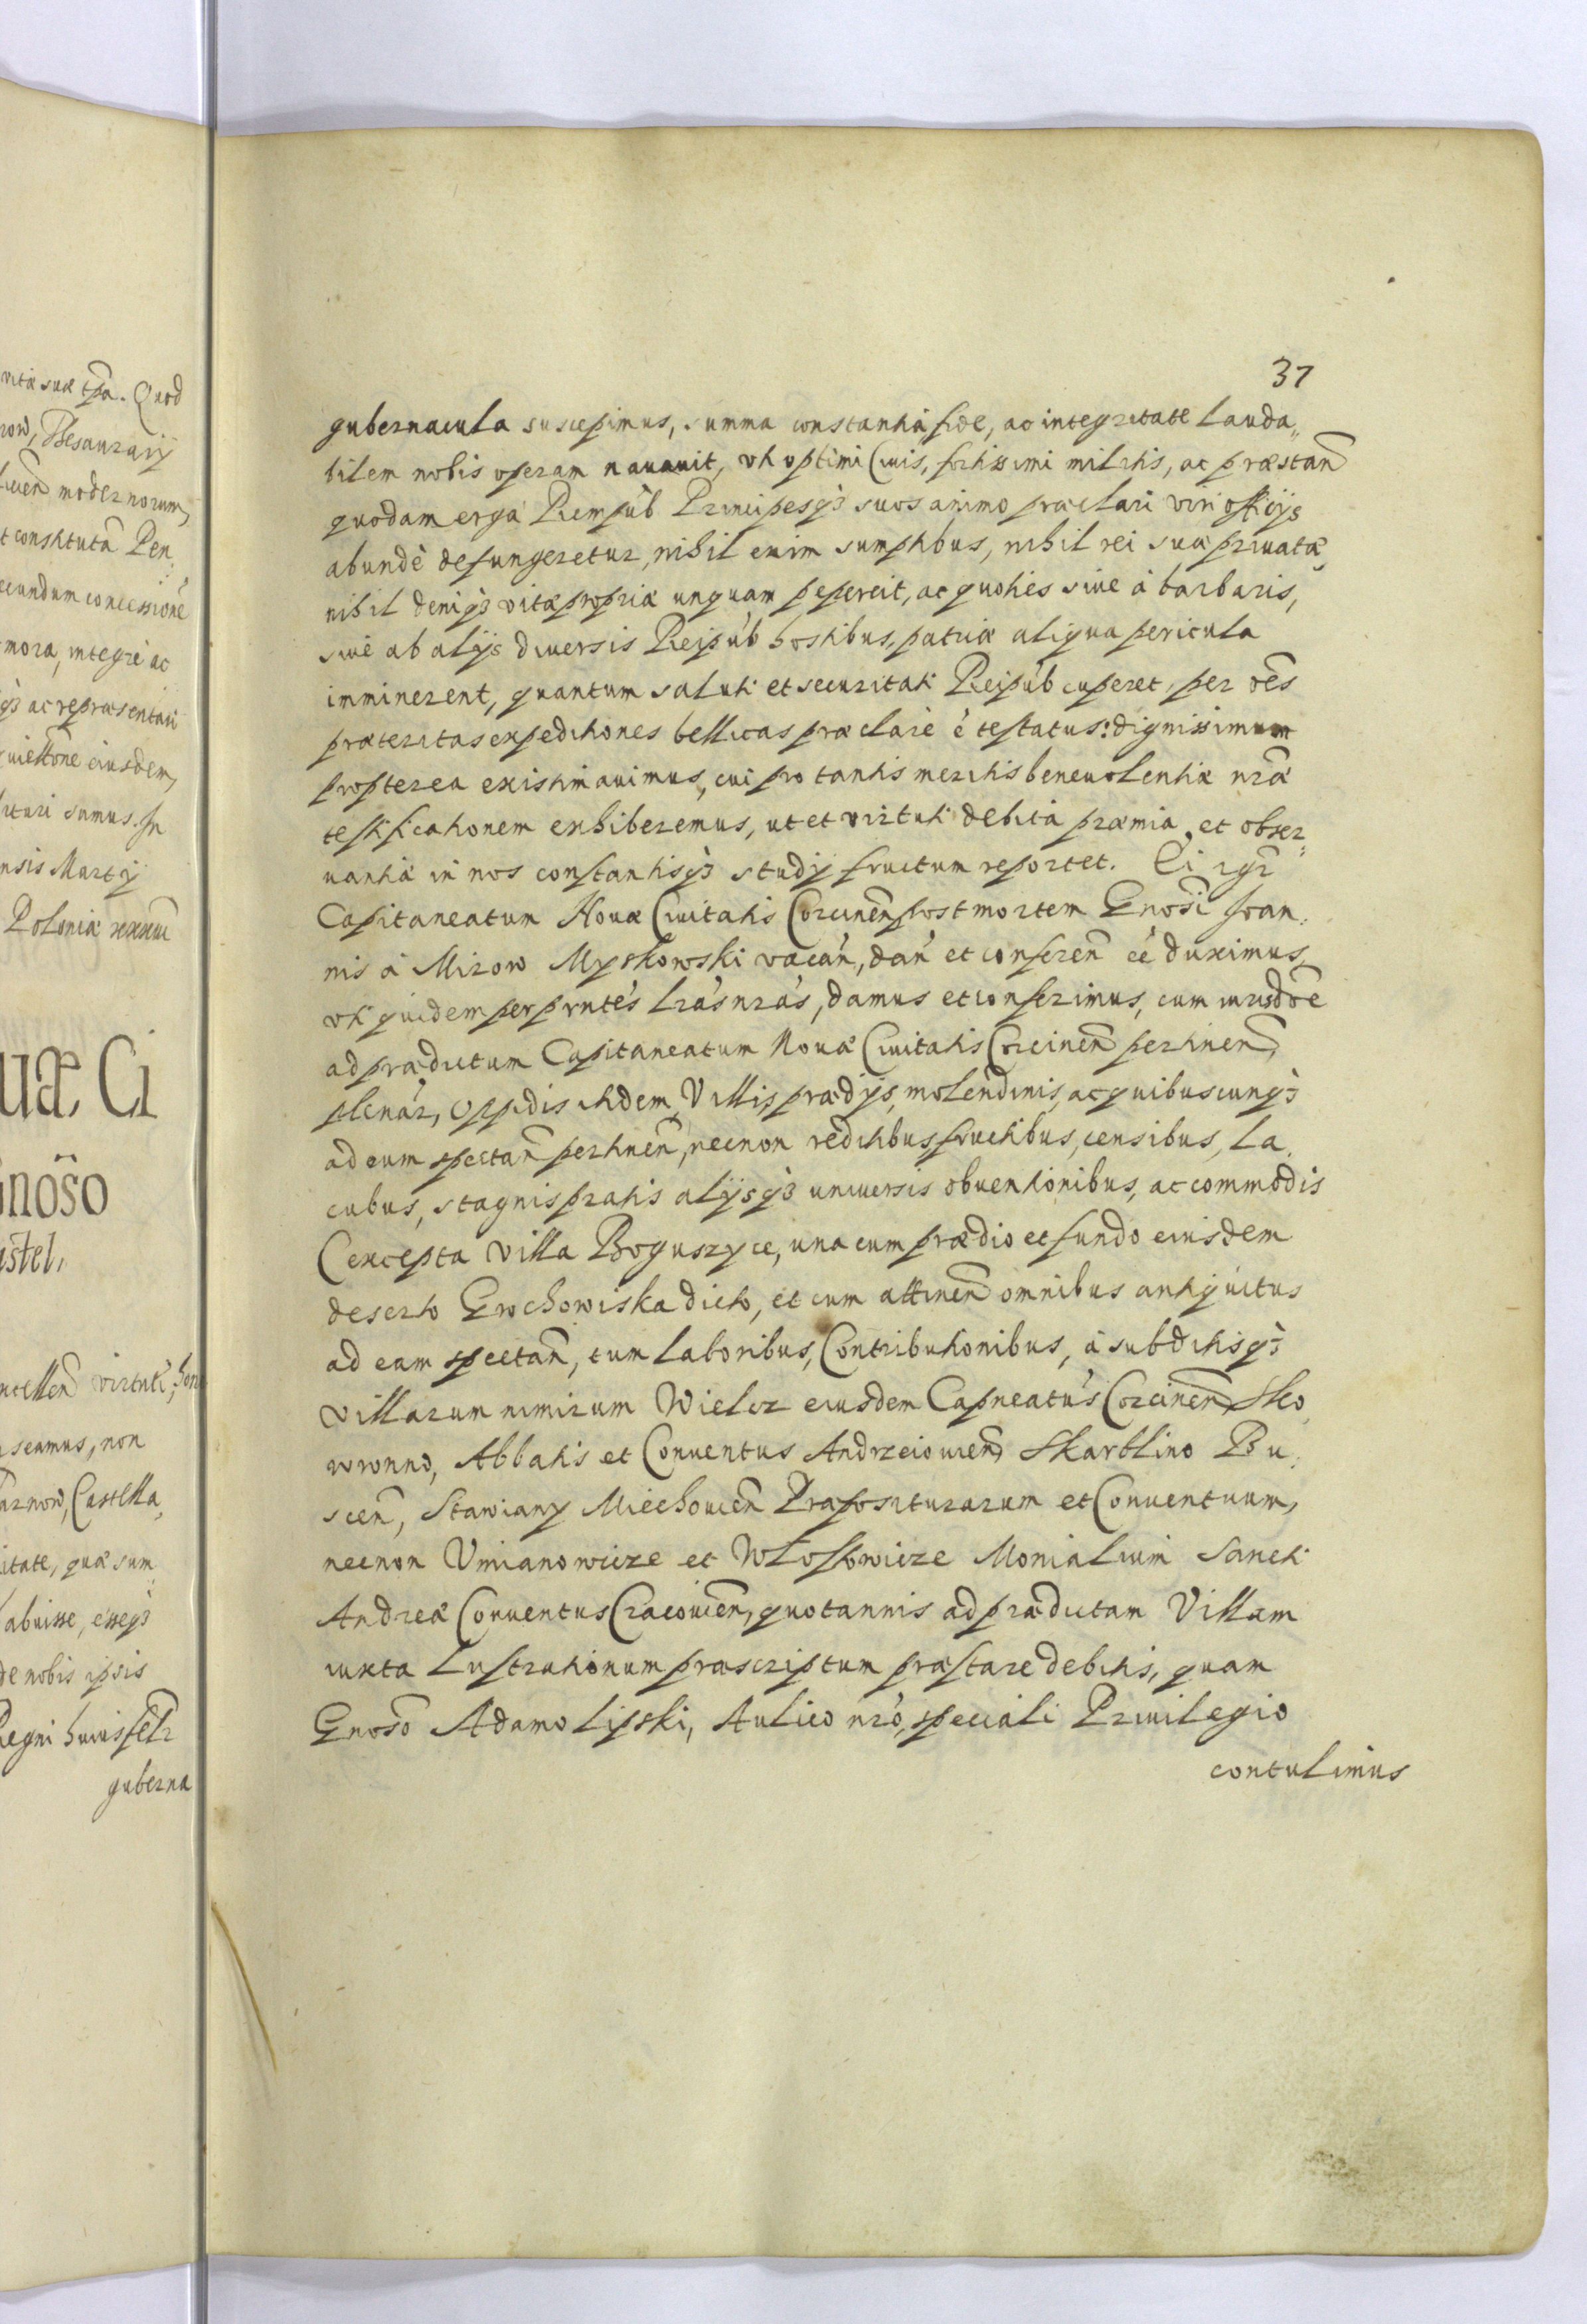 vitæ suæ tpa. Quod
row, Thesaurarij
moderno­rum,
t constitutã Pen
ecundum concessionẽ
mora, integrè ac
gʒ ac repræsentari
eiusdem,
ituri sumus. In
nsis Martij
Poloniæ
uæ Ci
inõso
istel,
ncellen̄ virtuti,
seamus, non
arnow, Castella,
itate, quæ sum
abuisse, essegʒ
de nobis ipsis
Regni huius felr
guberna
37
gubernacula suscepimus, summa constantia fide, ac integritate lauda„
bilem nobis operam nauauit, vti optimi Ciuis, fortissimi militis, ac præstan̄
quodam erga Rempùb Principesqʒ suos animo præclari viri officijs
abundè defungeretur, nihil enim sumptibus, nihil rei suæ priuatæ,
nihil deniqʒ vitæ propriæ unquam pepercit, ac quoties siue à barbaris,
siue ab alijs diuersis Reipùb hostibus, patriæ aliqua pericula
imminerent, quantum saluti et securitati Reipùb cuperet, per oẽs
præteritas expeditiones bellicas præclarè ẽ testatus: dignissimum
propterea existimauimus, cui pro tantis meritis beneuolentiæ nr̃æ
testificationem exhiberemus, ut et virtuti debita præmia et obser„
uantiæ in nos constantisqʒ studij fructum reportet. Ei igr̃
Capitaneatum Nouæ Ciuitatis Corcinen̄ post mortem Gnosi Joan„
nis à Mirow Myszkowski vacan̄, dan̄ et conferen̄ eẽ duximus,
vti quidem per pr̃ntes lr̃as nr̃as, damus et conferimus, cum iurisdõe
ad prædictum Capitaneatum Nouæ Ciuitatis Corcinen̄ pertinen̄,
plenar, Oppidis itidem, Villis, prædijs, molendinis, ac quibuscunqʒ
ad eum spectan̄ pertinen̄, necnon reditibus, fructibus, censibus, la„
cubus, stagnis, pratis alijsqʒ uniuersis obuentionibus, ac commodis
(excepta villa Boguszyce, una cum prædio et fundo eiusdem
deserto Grochowiska dicto, et cum attinen̄ omnibus antiquitus
ad eam spectan̄, tum laboribus, Contributionibus, à subditisqʒ
villarum nimirum Wielcz eiusdem Capneatus Corcinen̄, Sko„
wronno, Abbatis et Conuentus Andrzeiouien̄, Skarblino Bu„
scen̄, Stawiany Miechouien̄ Præpositurarum et Conuentuum,
necnon Vmianowicze et Włosowicze Monialium Sancti
Andreæ Conuentus Cracouien̄, quotannis ad prædictam Villam
iuxta Lustrationum præscriptum præstare debitis, quam
Gnoso Adamo Lipski, Aulico nr̃o, speciali Priuilegio
contulimus